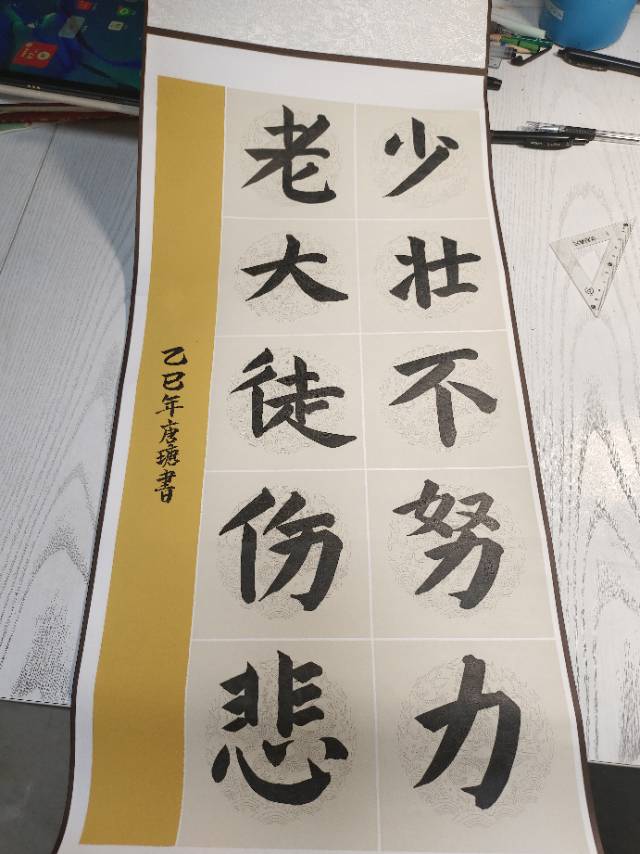 少壮不努力
老大徒伤悲
乙巳年唐瑭書